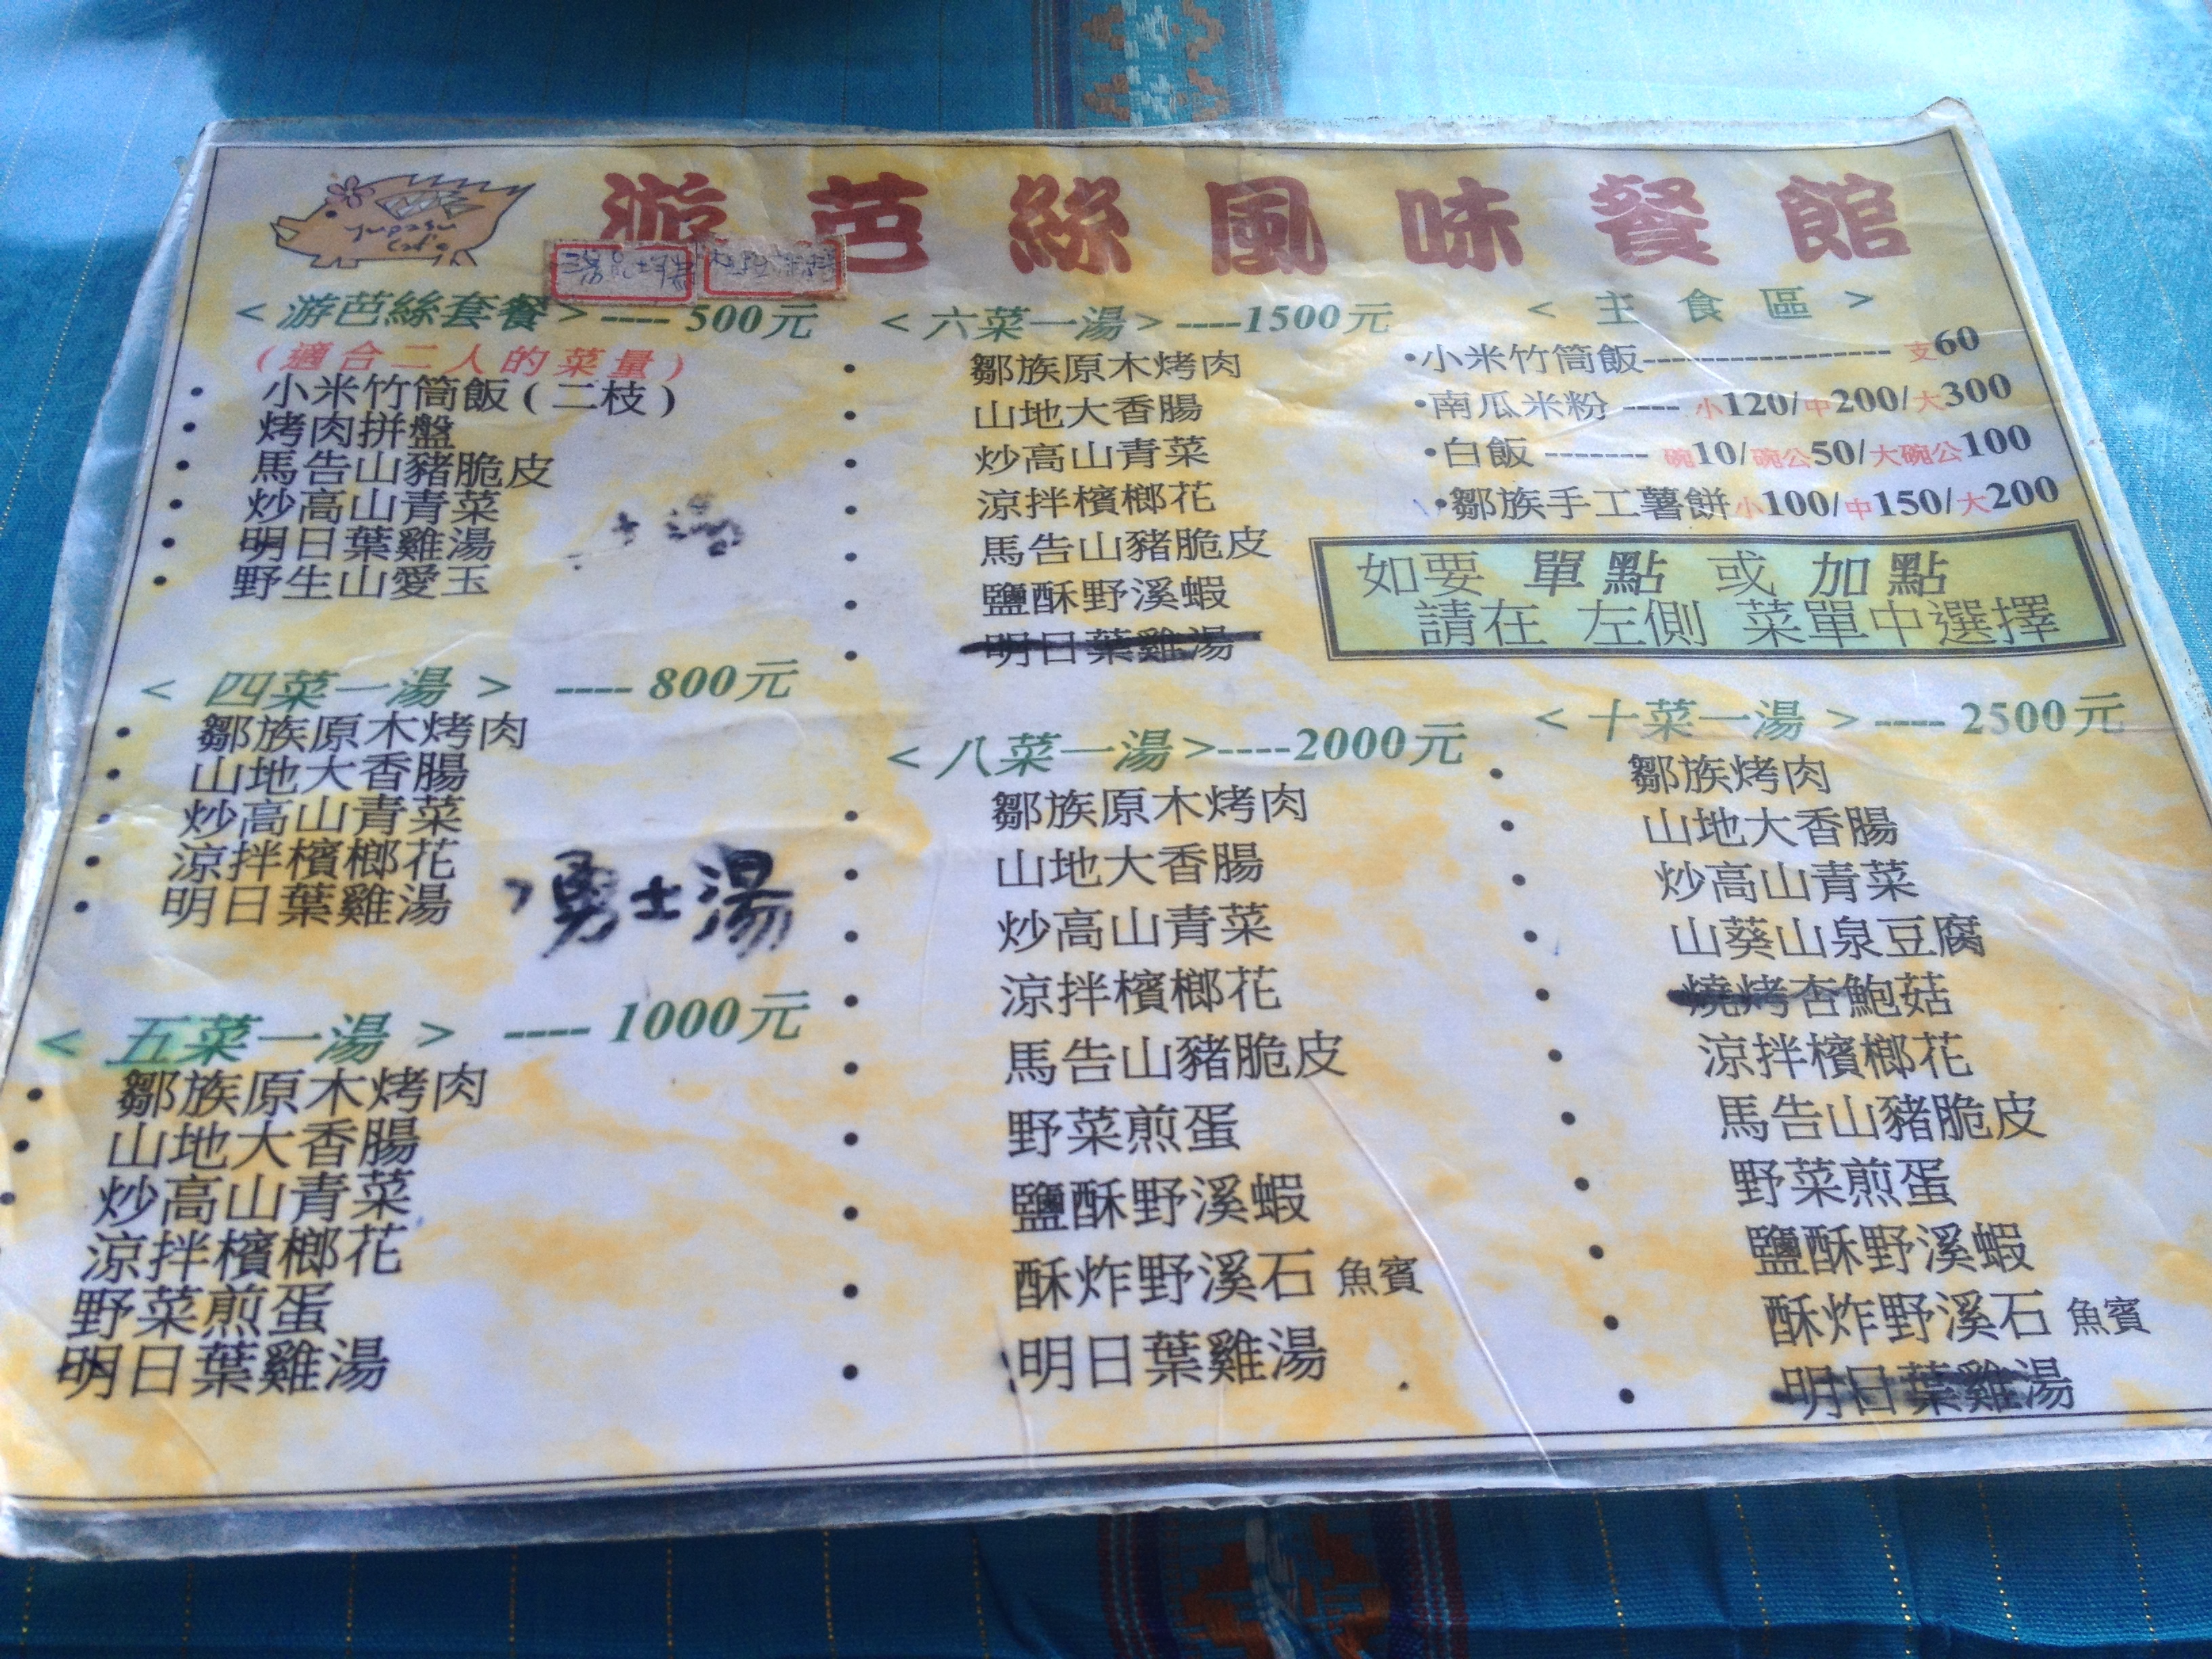 游芭絲風味餐館
yupasu
cafe
<游芭絲套餐>---- 500元
(適合二人的菜量)
• 小米竹筒飯(二枝)
• 烤肉拼盤
• 馬告山豬脆皮
• 炒高山青菜
• 明日葉雞湯
• 野生山愛玉
< 四菜一湯 > ---- 800元
• 鄒族原木烤肉
• 山地大香腸
• 炒高山青菜
• 涼拌檳榔花
• 明日葉雞湯
勇士湯
< 五菜一湯 > ---- 1000元
• 鄒族原木烤肉
• 山地大香腸
• 炒高山青菜
涼拌檳榔花
野菜煎蛋
明日葉雞湯
<六菜一湯>----1500元
• 鄒族原木烤肉
• 山地大香腸
• 炒高山青菜
• 涼拌檳榔花
• 馬告山豬脆皮
• 鹽酥野溪蝦
• 明日葉雞湯
<八菜一湯>----2000元
• 鄒族原木烤肉
• 山地大香腸
• 炒高山青菜
• 涼拌檳榔花
• 馬告山豬脆皮
• 野菜煎蛋
• 鹽酥野溪蝦
• 酥炸野溪石 魚賓
• 明日葉雞湯
< 主 食 區 >
•小米竹筒飯----------------- 支60
•南瓜米粉 ---- 小120/中200/大300
•白飯 ------- 碗10/碗公50/大碗公100
•鄒族手工薯餅小100/中150/大200
如要 單點 或 加點
請在 左側 菜單中選擇
<十菜一湯>---- 2500元
• 鄒族烤肉
• 山地大香腸
• 炒高山青菜
• 山葵山泉豆腐
• 燒烤杏鮑菇
• 涼拌檳榔花
• 馬告山豬脆皮
• 野菜煎蛋
• 鹽酥野溪蝦
• 酥炸野溪石 魚賓
• 明日葉雞湯